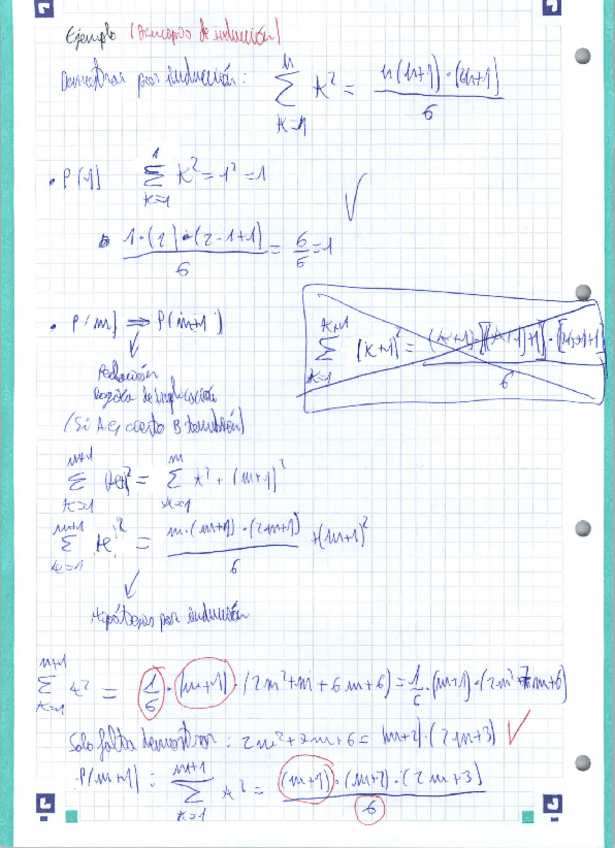 Ejemplo (Principio de inducción)
Demostrar por inducción: \sum_{k=1}^{n} k^2 = \frac{n(n+1)·(2n+1)}{6}
· P(1) \sum_{k=1}^{1} k^2 = 1^2 = 1
\frac{1·(2)·(2·1+1)}{6} = \frac{6}{6} = 1 ✓
· P(m) ⇒ P(m+1)
Relación
logica de implicación
(Si A es cierto B también)
\sum_{k=1}^{m+1} k^2 = \sum_{k=1}^{m} k^2 + (m+1)^2
\sum_{k=1}^{m+1} k^2 = \frac{m·(m+1)·(2m+1)}{6} + (m+1)^2
Hipótesis por inducción
\sum_{k=1}^{m+1} k^2 = \frac{1}{6}·(m+1)·(2m^2+m+6m+6) = \frac{1}{6}·(m+1)·(2m^2+7m+6)
Solo falta demostrar: 2m^2+7m+6 = (m+2)·(2m+3) ✓
·P(m+1): \sum_{k=1}^{m+1} k^2 = \frac{(m+1)·(m+2)·(2m+3)}{6}